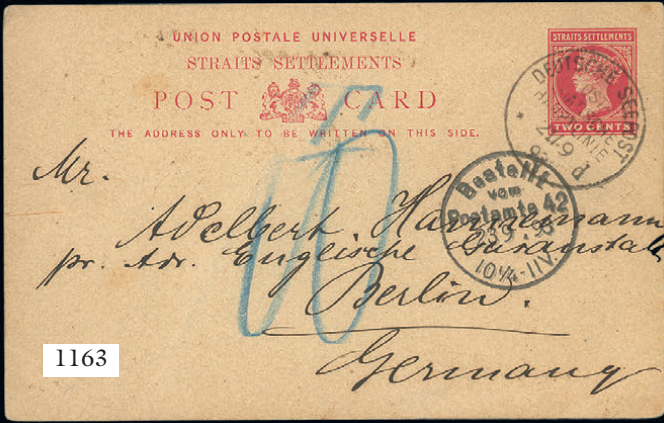 UNION POSTALE UNIVERSELLE
STRAITS SETTLEMENTS
POST CARD
THE ADDRESS ONLY TO BE WRITTEN ON THIS SIDE.
STRAITS SETTLEMENTS
TWO CENTS
DEUTSCHE SEEPOST
d
Bestellt
vom
Postamte 42
10¼-11V.
Mr.
Adelbert
pr. Adr. Englische Gasanstalt
Berlin.
Germany
1163